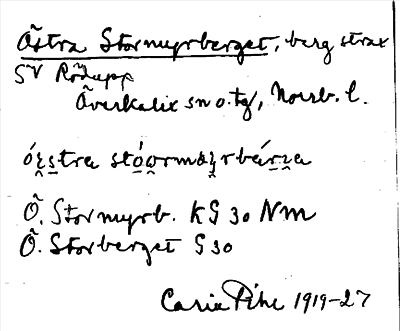 Östra Stormyrberget, berg strax
SV Rödupp
Överkalix sn o. tg, Norrb. l.
Ö. Stormyrb. KG 30 Nm
Ö. Storberget G 30
Carin Pihl 1919-27